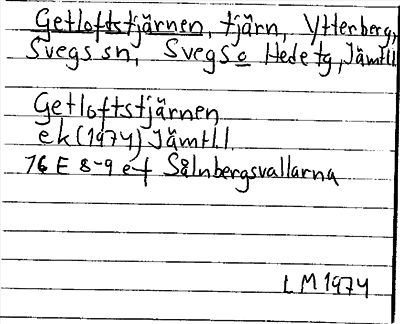 Getloftstjärnen, tjärn, Ytterberg,
Svegs sn, Svegs o Hede tg, Jämtl.
Getloftstjärnen
ek (1974) Jämtl.
16 E 8-9 e-f Sålnbergsvallarna
LM 1974